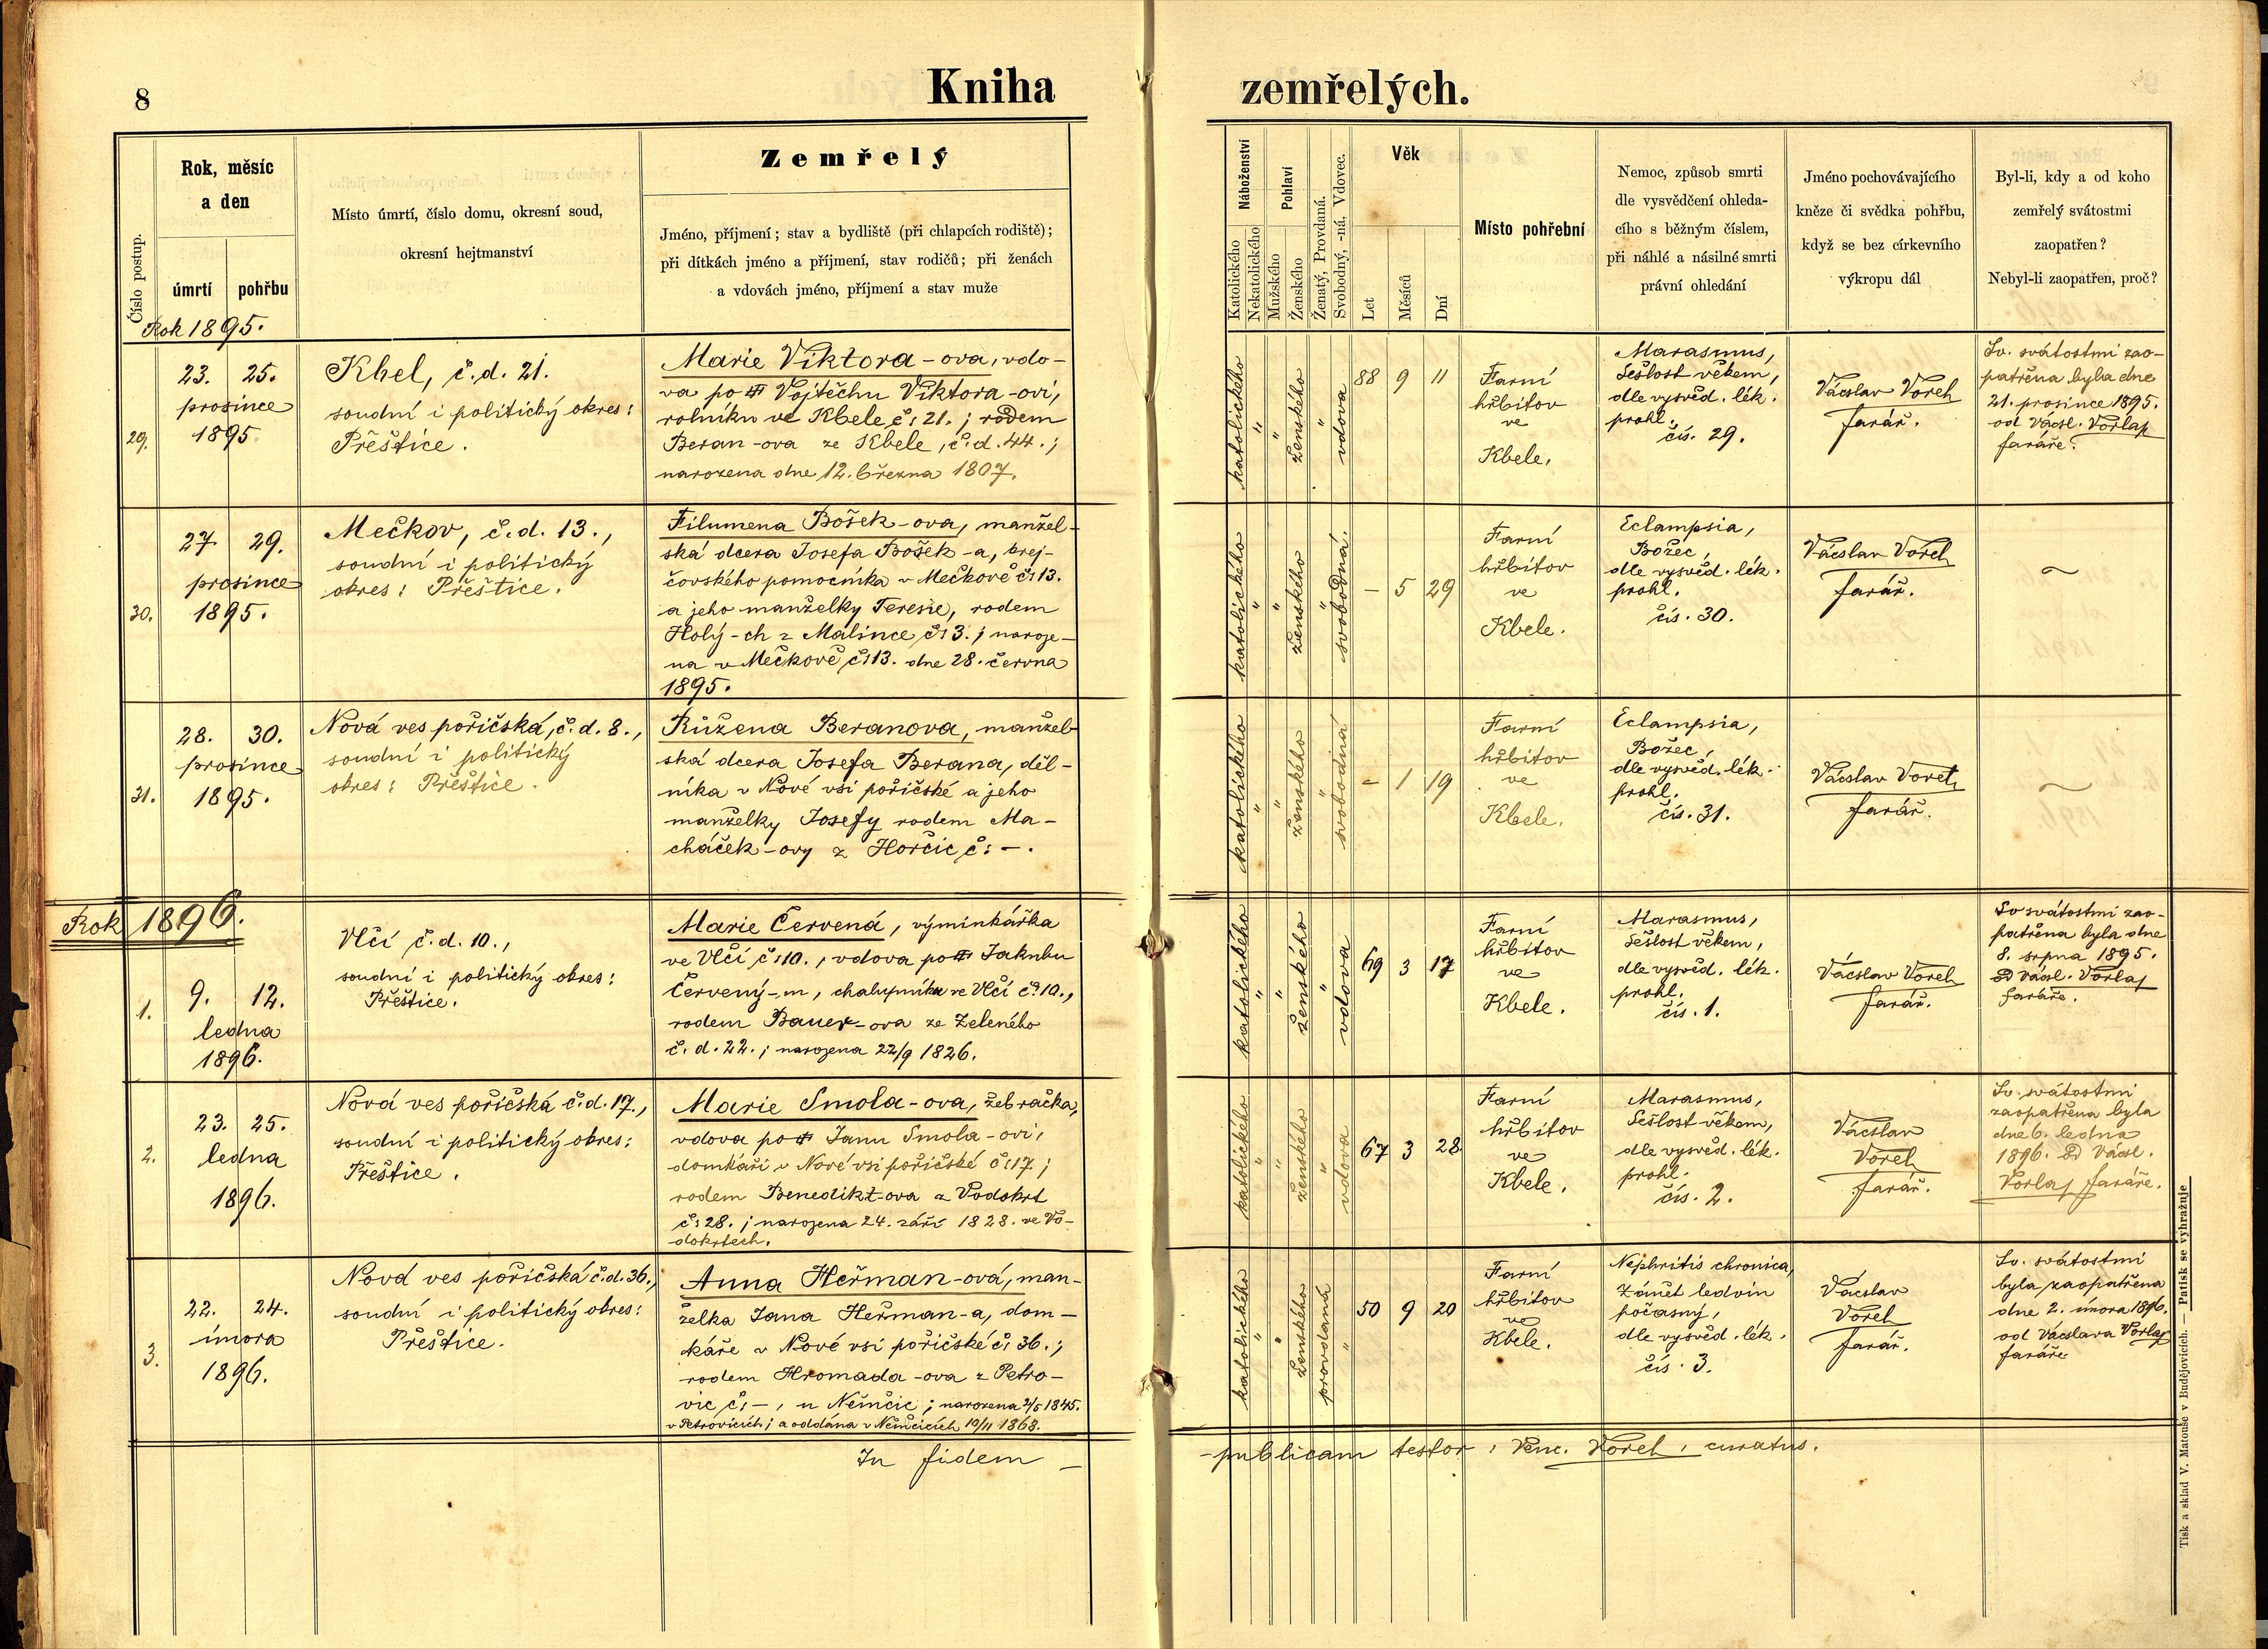 8
Kniha
zemřelých.
Číslo postup.
Rok, měsíc
a den
úmrtí
pohřbu
Místo úmrtí, číslo domu, okresní soud,
okresní hejtmanství
Zemřelý
Jméno, příjmení; stav a bydliště (při chlapcích rodiště);
při dítkách jméno a příjmení, stav rodičů; při ženách
a vdovách jméno, příjmení a stav muže
Náboženství
Katolického
Nekatolického
Pohlaví
Mužského
Ženského
Ženatý, Provdaná.
Svobodný, -ná. Vdovec.
Věk
Let
Měsíců
Dní
Místo pohřební
Nemoc, způsob smrti
dle vysvědčení ohleda-
cího s běžným číslem,
při náhlé a násilné smrti
právní ohledání
Jméno pochovávajícího
kněze či svědka pohřbu,
když se bez církevního
výkropu dál
Byl-li, kdy a od koho
zemřelý svátostmi
zaopatřen?
Nebyl-li zaopatřen, proč?
Rok 1895.
29.
23. 25.
prosince
1895.
Kbel, č.d. 21.
soudní i politický okres:
Přeštice.
Marie Viktora-ova, vdo-
va po Vojtěchu Viktora-ovi,
rolníku ve Kbele č: 21.; rodem
Beran-ova ze Kbele, č.d. 44.;
narozena dne 12. března 1807.
katolického
"
"
ženského
"
vdova
88 9 11
Farní
hřbitov
ve
Kbele.
Marasmus,
Sešlost věkem,
dle vysvěd. lék.
prohl.
čís. 29.
Vácslav Vorel
farář.
Sv. svátostmi zao-
patřena byla dne
21. prosince 1895.
od Vácsl. Vorla,
faráře.
30.
27 29.
prosince
1895.
Mečkov, č.d. 13.,
soudní i politický
okres: Přeštice.
Filumena Bošek-ova, manžel-
ská dcera Josefa Bošek-a, krej-
čovského pomocníka v Mečkově č: 13.
a jeho manželky Teresie, rodem
Holý-ch z Malince č: 3.; naroze-
na v Mečkově č: 13. dne 28. června
1895.
katolického
"
"
ženského
"
svobodná.
- 5 29
Farní
hřbitov
ve
Kbele.
Eclampsia,
Božec,
dle vysvěd. lék.
prohl.
čís. 30.
Vácslav Vorel
farář.
~
31.
28. 30.
prosince
1895.
Nová ves poříčská, č.d. 8.,
soudní i politický
okres: Přeštice.
Růžena Beranova, manžel-
ská dcera Josefa Berana, děl-
níka v Nové vsi poříčské a jeho
manželky Josefy rodem Ma-
cháček-ovy z Horčic č: -.
katolického
"
"
ženského
"
svobodná
- 1 19
Farní
hřbitov
ve
Kbele.
Eclampsia,
Božec,
dle vysvěd. lék.
prohl.
čís. 31.
Vácslav Vorel,
farář.
~
Rok 1896.
1.
9. 12.
ledna
1896.
Vlčí č.d. 10.,
soudní i politický okres:
Přeštice.
Marie Červená, výminkářka
ve Vlčí č: 10., vdova po Jakubu
Červený-m, chalupníku ve Vlčí č: 10.,
rodem Bauer-ova ze Zeleného
č.d. 22.; narozena 22/9 1826.
katolického
"
"
ženského
"
vdova
69 3 17
Farní
hřbitov
ve
Kbele.
Marasmus,
Sešlost věkem,
dle vysvěd. lék.
prohl.
čís. 1.
Vácslav Vorel
farář.
Sv svátostmi zao-
patřena byla dne
8. srpna 1895.
od Vácsl. Vorla,
faráře.
2.
23. 25.
ledna
1896.
Nová ves poříčská č.d. 17.,
soudní i politický okres:
Přeštice.
Marie Smola-ova, žebračka,
vdova po Janu Smola-ovi,
domkáři v Nové vsi poříčské č: 17;
rodem Benedikt-ova z Vodokrt
č: 28.; narozena 24. září 1828. ve Vo-
dokrtech.
katolického
"
"
ženského
"
vdova
67 3 28
Farní
hřbitov
ve
Kbele.
Marasmus,
Sešlost věkem,
dle vysvěd. lék.
prohl.
čís. 2.
Vácslav
Vorel,
farář.
Sv. svátostmi
zaopatřena byla
dne 6. ledna
1896. od Vácsl.
Vorla, faráře.
3.
22. 24.
února
1896.
Nová ves poříčská č.d. 36.,
soudní i politický okres:
Přeštice.
Anna Heřman-ová, man-
želka Jana Heřman-a, dom-
káře v Nové vsi poříčské č: 36.;
rodem Hromada-ova z Petro-
vic č: -, u Němčic; narozena 2/5 1845.
v Petrovicích; a oddána v Němčicích 10/11 1868.
katolického
"
"
ženského
provdaná
"
50 9 20
Farní
hřbitov
ve
Kbele.
Nephritis chronica,
Zánět ledvin
počasný,
dle vysvěd. lék.
čís. 3.
Vácslav
Vorel
farář.
Sv. svátostmi
byla zaopatřena
dne 2. února 1896.
od Vácslava Vorla,
faráře
In fidem -
-publicam testor: Venc. Vorel, curatus.
Tisk a sklad V. Matouše v Budějovicích. — Patisk se vyhražuje